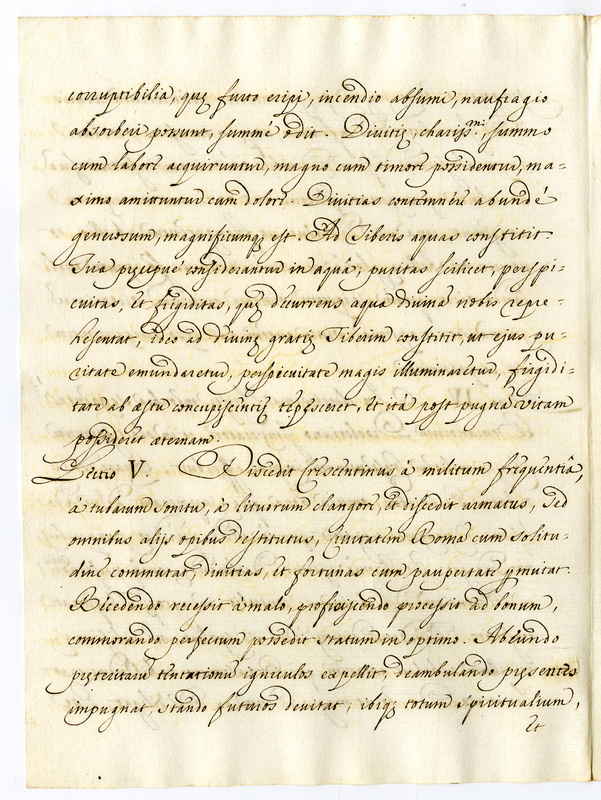 corruptibilia, quę furto eripi, incendio absumi, naufragio
absorberi possunt, summe odit. Divitię, chariss.mi, summo
cum labore acquiruntur, magno cum timore possidentur, ma=
ximo amittuntur cum dolore. Divitias contemnere abundé
generosum, magnificumq; est. Ad Tiberis aquas constitit.
Tria pręcipué considerantur in aquâ; puritas scilicet, perspi=
cuitas, et frigiditas, quę decurrens aqua divina nobis repre=
hesentat, ideo ad divinę gratię Tiberim constitit, ut ejus pu=
ritate emundaretur, perspicuitate magis illuminaretur, frigidi=
tate ab æstu concupiscentię tepesceret, et itá post pugnã vitam
possideret æternam.
Lectio V. Discedit Crescentinus á militum frequentiâ,
á tubarum sonitu, á lituorum clangore, et discedit armatus, sed
omnibus alijs opibus destitutus, Civitatem Romã cum solitu=
dine commutat, divitias, et fortunas cum paupertate ꝑmutat.
Recedendo recessit á malo, proficiscendo processit ad bonum,
commorando perfectum possedit statum in optimo. Abeundo
pręteritarũ tentationũ igniculos expellit, deambulando pręsentes
impugnat, stando futuros devitat; ibiq; totum spiritualium,
et